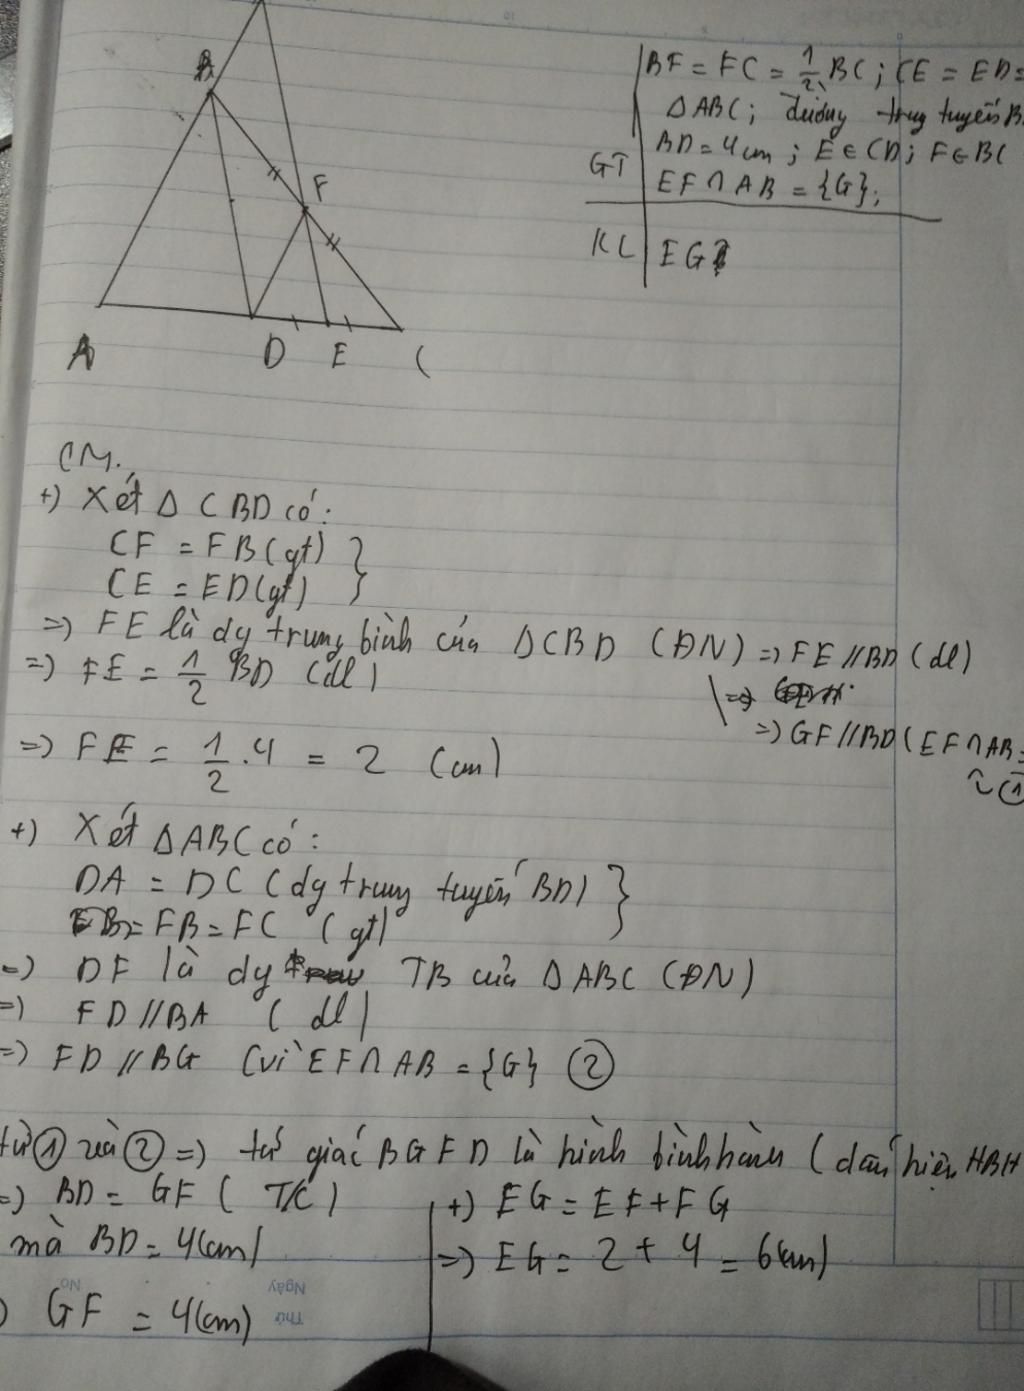 B
F
A
D
E
C
GT
BF = FC = 1/2 BC ; CE = ED =
Δ ABC ; đường trung tuyến B
BD = 4 cm ; E ∈ CD ; F ∈ BC
EF ∩ AB = {G} ;
KL
EG?
CM.
+) Xét Δ CBD có:
CF = FB (gt) }
CE = ED (gt) }
=> FE là đg trung bình của Δ CBD (ĐN) => FE // BD (đl)
=> FE = 1/2 BD (đl)
=> GF // BD ( EF ∩ AB =
①
=> FE = 1/2 . 4 = 2 (cm)
+) Xét Δ ABC có:
DA = DC (đg trung tuyến BD) }
FB = FC (gt)
=> DF là đg TB của Δ ABC (ĐN)
=> FD // BA (đl)
=> FD // BG (vì EF ∩ AB = {G} ②
từ ① và ② => tứ giác BGFD là hình bình hành (dấu hiệu HBH
=> BD = GF (T/C)
mà BD = 4 (cm)
GF = 4 (cm)
+) EG = EF + FG
=> EG = 2 + 4 = 6 (cm)
No
Ngày
Thứ